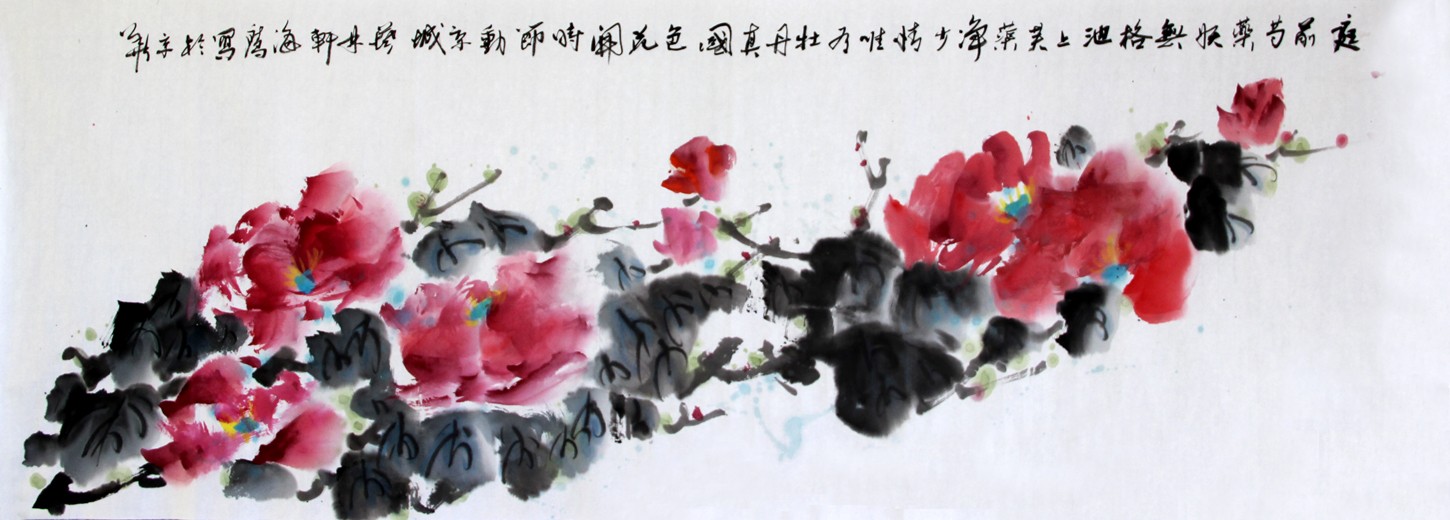 庭前芍藥妖無格池上芙蓉淨少情唯有牡丹真國色花開時節動京城藝林軒海鷹寫於京